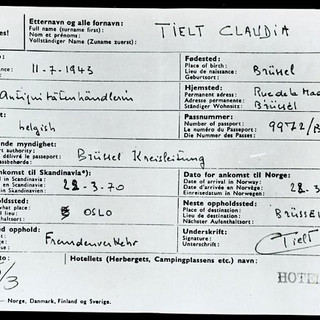 es!
Etternavn og alle fornavn:
Full name (surname first) :
Nom et prénoms :
Vollständiger Name (Zuname zuerst) :
TIELT CLAUDIA
11-7-1943
Fødested:
Place of birth :
Lieu de naissance :
Geburtsort :
Brüssel
Antiquitätenhändlerin
Hjemsted:
Permanent adress :
Adresse permanente :
Ständiger Wohnsitz :
Rue de la
Brüssel
belgish
Passnummer:
Number of passport :
Le numéro du Passeport :
Die Nummer des Passes :
9972/B
ende myndighet:
authority :
délivré le passeport :
assbehörde :
Brüssel Kreisleitung
ankomst til Skandinavia*):
in Scandinavia :
en Scandinavie :
in Skandinavien :
22-3-70
Dato for ankomst til Norge:
Date of arrival in Norway :
Date d'arrivée en Norvège :
Einreisedatum in Norwegen :
oldssted:
what place :
lieu :
haltsort :
OSLO
Neste oppholdssted:
Place of destination :
Lieu de destination :
Nächster Aufenthaltsort :
BRÜSSE
ed opphold:
Fremdenverkehr
Underskrift:
Signature :
Unterschrift :
Tielt
to:
Hotellets (Herbergets, Campingplassens etc.) navn:
/3
HOTE
— Norge, Danmark, Finland og Sverige.